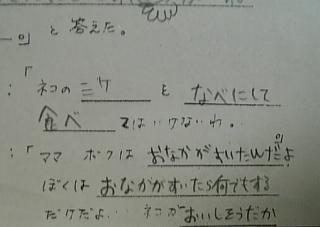 の と答えた。
：「ネコの ミケ を なべにして
食べ てはいけないわ。
：「ママ ボクは おなかがすいたんだよ
ぼくは おなかがすいたら何でもする
だけだよ… ネコが おいしそうだか